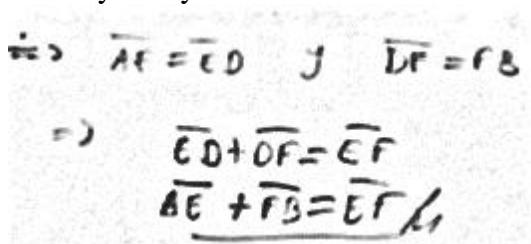 ⇒ A̅E̅ = E̅D̅ y D̅F̅ = FB
⇒ E̅D̅ + D̅F̅ = E̅F̅
A̅E̅ + F̅B̅ = E̅F̅